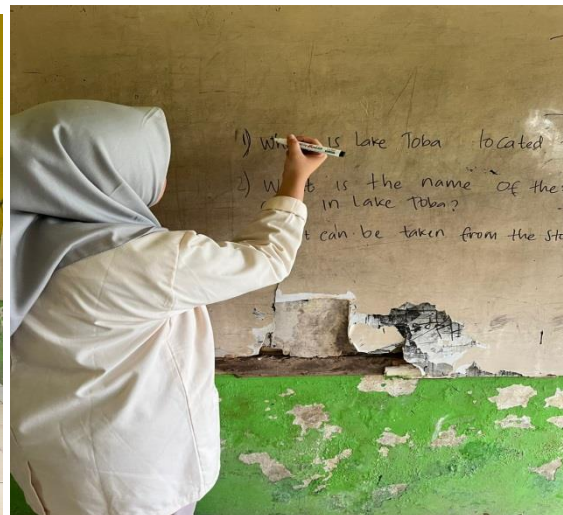 1) is Lake Toba located
2) is the name of the
in Lake Toba?
can be taken from the